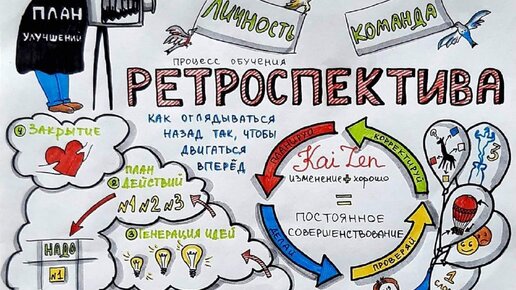 ПЛАН
УЛУЧШЕНИЙ
ЛИЧНОСТЬ
КОМАНДА
ПРОЦЕСС ОБУЧЕНИЯ
РЕТРОСПЕКТИВА
КАК ОГЛЯДЫВАТЬСЯ
НАЗАД ТАК, ЧТОБЫ
ДВИГАТЬСЯ
ВПЕРЁД
④ ЗАКРЫТИЕ
② ПЛАН
ДЕЙСТВИЙ
№1 №2 №3
③ ГЕНЕРАЦИЯ ИДЕЙ
НАДО
№1
ПЛАНИРУЮ
КОРРЕКТИРУЙ
KaiZen
изменение + хорошо
=
ПОСТОЯННОЕ
СОВЕРШЕНСТВОВАНИЕ
ДЕЛАЙ
ПРОВЕРЯЙ
3
1